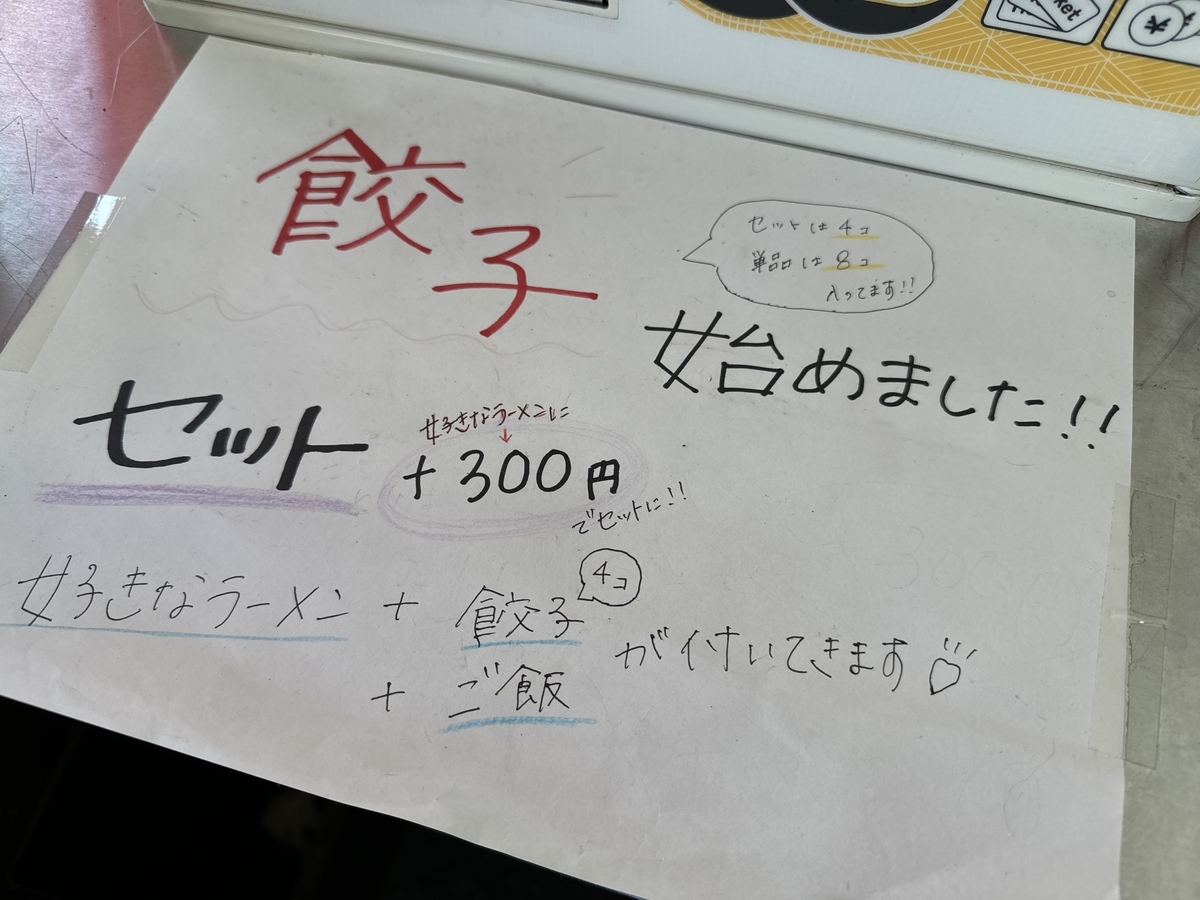 餃子
セットは4コ
単品は8コ
入ってます!!
始めました!!
セット
好きなラーメンに
↓
+300円
でセットに!!
4コ
好きなラーメン + 餃子
+ ご飯
が付いてきます♡